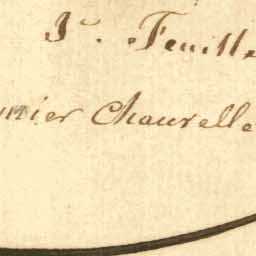 J.ᵉ Feuille
nier Chaurelle